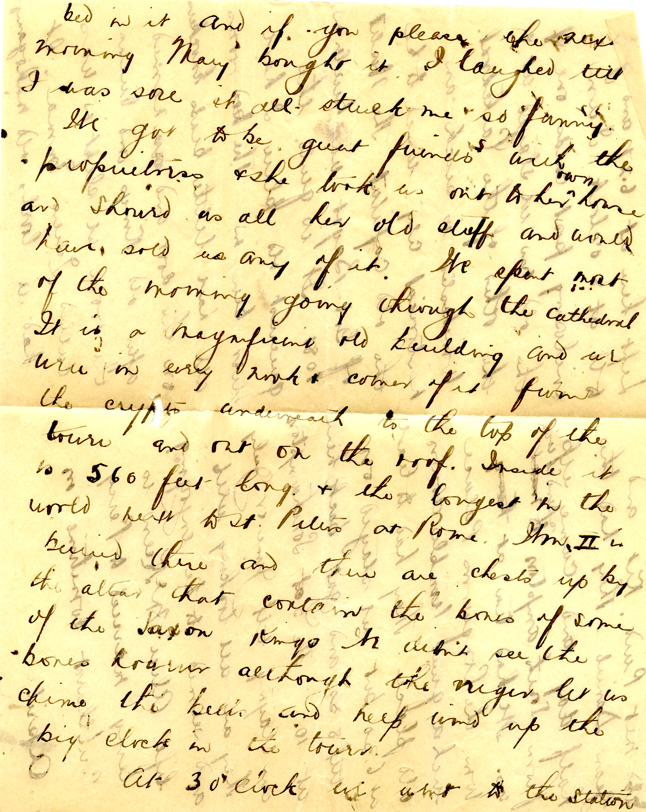 bed in it and if you please the next
morning Mary bought it I laughed till
I was sore it all struck me so funny.
We got to be great friends with the
proprietress & she took us out to her own house
and showed us all her old stuff and would
have sold us any of it. We spent most
of the morning going through the cathedral
It is a magnificent old building and we
were in every nook & corner of it from
the crypts underneath to the top of the
tower and out on the roof. Inside it
is 560 feet long & the longest in the
world next to St. Peters at Rome. Wm. II is
buried there and there are chests up by
the altar that contain the bones of some
of the Saxon Kings We didn't see the
bones however although the verger let us
chime the bells and help wind up the
big clock in the tower.
At 3 o'clock we went to the station